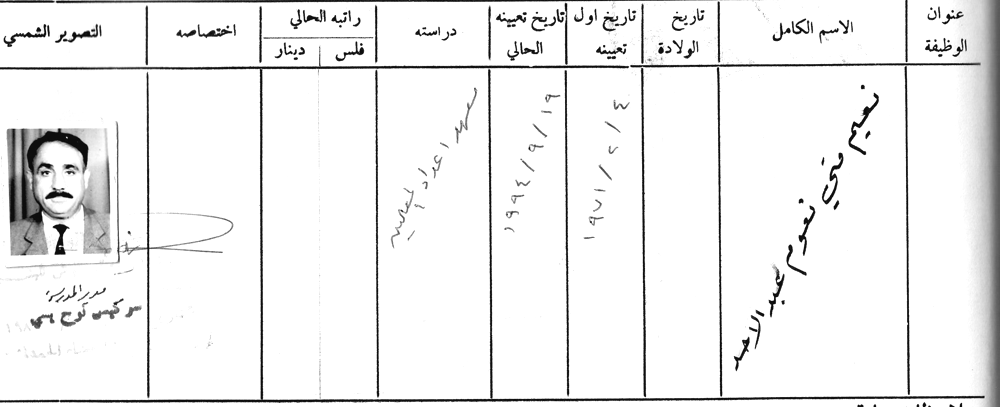 عنوان الوظيفة
الاسم الكامل
تاريخ الولادة
تاريخ اول تعيينه
تاريخ تعيينه الحالي
دراسته
راتبه الحالي
فلس
دينار
اختصاصه
التصوير الشمسي
نعيم متي نعوم عبد الاحد
١٩٧١/٢/٤
١٩٩٤/٩/١٩
معهد اعداد المعلمين
مدير المدرسة